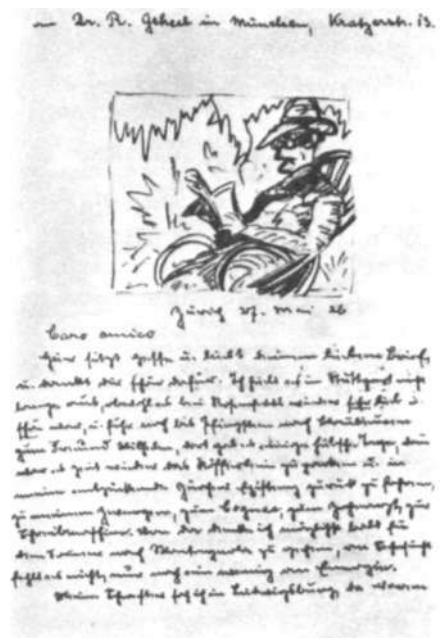 Dr. R. Geheeb in München, Kratzerstr. 13.
Zürich 27. Mai 26
Caro amico
Hier sitzt Hesse u. liest deinen lieben Brief,
u. dankt dir sehr dafür. Ich hielt es in Stuttgart nicht
lange aus, obwohl es bei wieder sehr lieb u.
schön war, u. fuhr noch bis Pfingsten nach Blaubeuren
zum Freund Wilhelm, dort gab es einige hübsche Tage, dann
war es Zeit wieder das Köfferlein zu packen u. in
meine entzückende Zürcher Existenz zurück zu kehren,
zu meinem zum Cognac, zum Zahnarzt, zur
Schreibmaschine. Von da denke ich möglichst bald für
den Sommer nach Montagnola zu gehen, an Sehnsucht
fehlt es nicht, nur noch ein wenig an Energie.
sah ich in Ludwigsburg, da waren